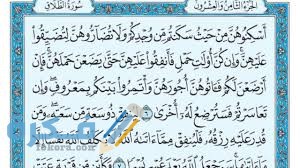 الجزء الثامن والعشرون
سورة الطلاق
أَسْكِنُوهُنَّ مِنْ حَيْثُ سَكَنتُم مِّن وُجْدِكُمْ وَلَا تُضَآرُّوهُنَّ لِتُضَيِّقُوا۟
عَلَيْهِنَّ وَإِن كُنَّ أُو۟لَـٰتِ حَمْلٍ فَأَنفِقُوا۟ عَلَيْهِنَّ حَتَّىٰ يَضَعْنَ حَمْلَهُنَّ فَإِنْ
أَرْضَعْنَ لَكُمْ فَـَٔاتُوهُنَّ أُجُورَهُنَّ وَأْتَمِرُوا۟ بَيْنَكُم بِمَعْرُوفٍ وَإِن
تَعَاسَرْتُمْ فَسَتُرْضِعُ لَهُۥٓ أُخْرَىٰ ٦ ذُو سَعَةٍ مِّن سَعَتِهِۦ وَمَن
قُدِرَ عَلَيْهِ رِزْقُهُۥ فَلْيُنفِقْ مِمَّآ ءَاتَىٰهُ ٱللَّهُ لَا يُكَلِّفُ ٱللَّهُ نَفْسًا
فكرة
fekera.com